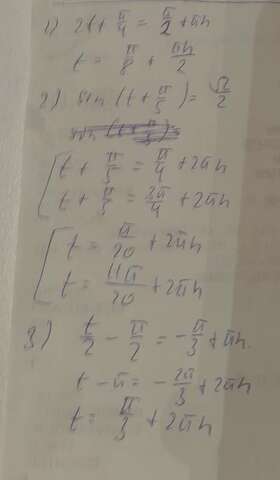 1) 2t + π/4 = π/2 + πn
t = π/8 + πn/2
2) sin (t + π/5) = √2/2
t + π/5 = π/4 + 2πn
t + π/5 = 3π/4 + 2πn
t = π/20 + 2πn
t = 11π/20 + 2πn
3) t/2 − π/2 = −π/3 + πn.
t − π = −2π/3 + 2πn
t = π/3 + 2πn